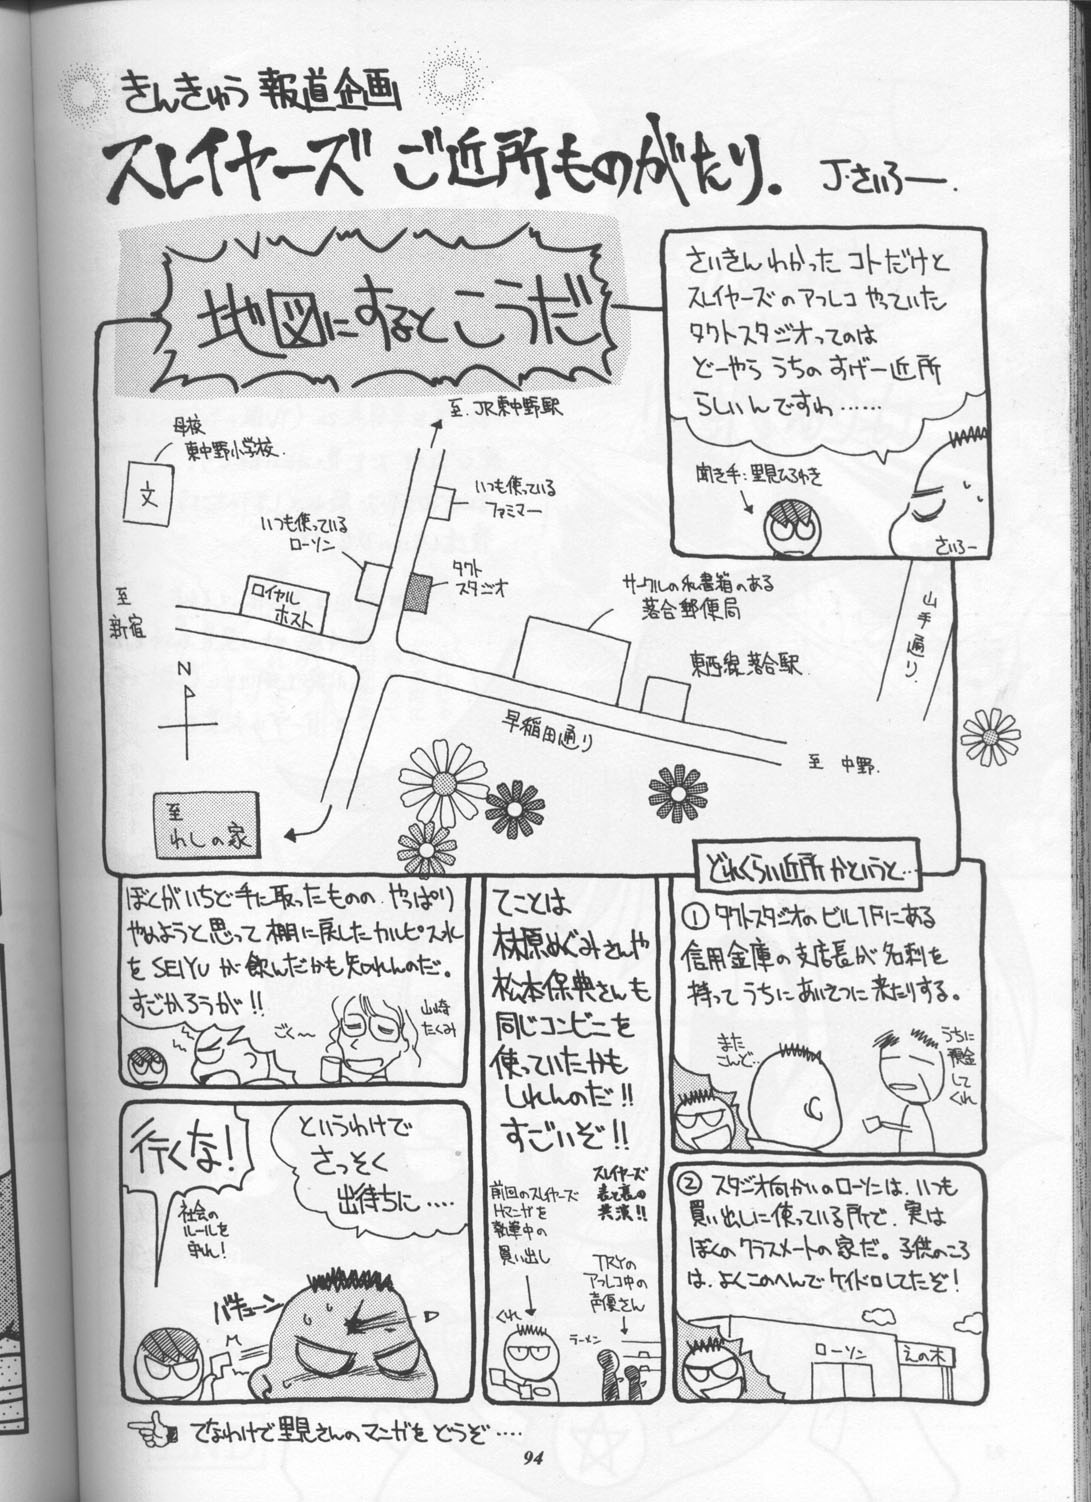 きんきゅう 報道企画
スレイヤーズ ご近所ものがたり.
J・さいろー.
さいきん わかった コトだけと
スレイヤーズの アフレコ やっていた
タクトスタジオってのは
どーやら うちの すげー近所
らしいんですわ……
聞き手：里見ひろゆき
さいろー
地図にするとこうだ
至.JR東中野駅
母校
東中野小学校.
文
いつも使っている
ファミマー
いつも使っている
ローソン
タクト
スタジオ
ロイヤル
ホスト
至
新宿
サークルの私書箱のある
落合郵便局
東西線落合駅.
山手通り.
N
早稲田通り
至 中野.
至
わしの家
どれくらい近所かというと…
① タクトスタジオのビル1Fにある
信用金庫の支店長が名刺を
持ってうちにあいさつに来たりする。
また
こんど…
うちに
預金
して
くれ
② スタジオ向かいのローソンは、いつも
買い出しに使っている所で、実は
ぼくのクラスメートの家だ。子供のころ
は、よくこのへんでケイドロしてたぞ！
ローソン
えの木
てことは
林原めぐみさんや
松本保典さんも
同じコンビニを
使っていたかも
しれんのだ!!
すごいぞ!!
スレイヤーズ
表と裏の
共演!!
前回のスレイヤーズ
Hマンガを
執筆中の
買い出し
TRYの
アフレコ中の
声優さん
ぐれ
ラーメン
ぼくがいちど手に取ったものの、やっぱり
やめようと思って棚に戻したカルピス水
をSEIYUが飲んだかも知れんのだ。
すごかろうが!!
ごく〜
山崎
たくみ
というわけで
さっそく
出待ちに….
行くな！
社会の
ルールを
守れ！
バキューン
てなわけで里見さんのマンガをどうぞ….
94